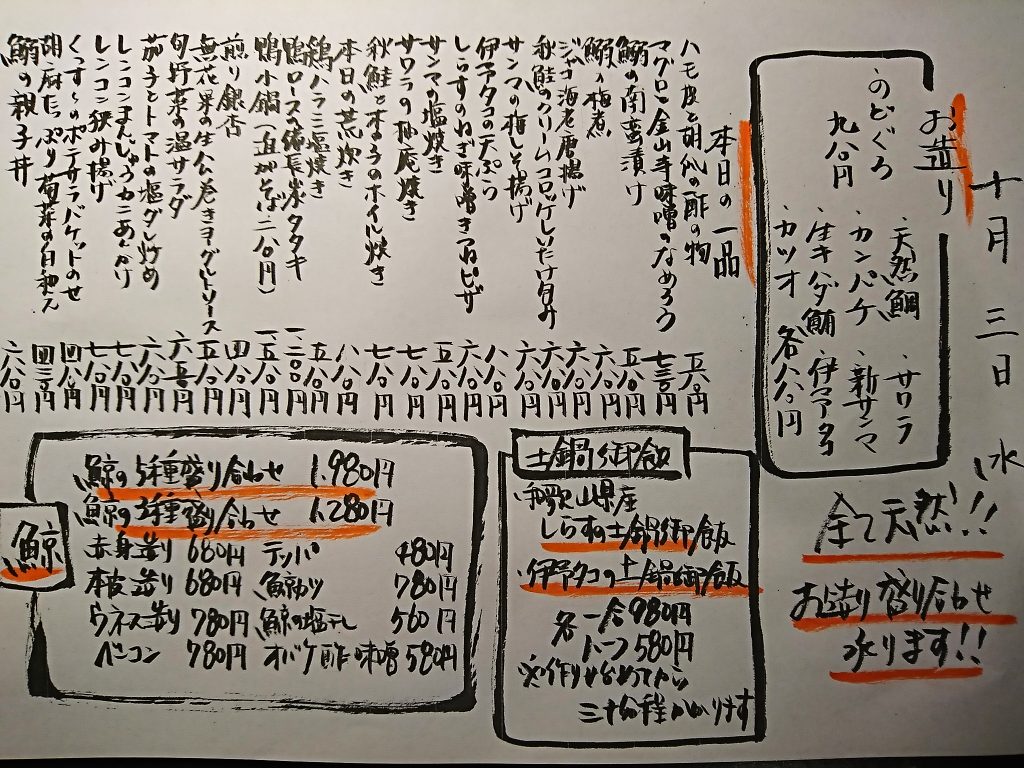 十月三日 水
お造り
・のどぐろ
九八〇円
・天然鯛 ・サワラ
・カンパチ ・新サンマ
・生キハダ鮪 ・伊予タコ
・カツオ 各八八〇円
全て天然!!
お造り盛り合わせ
承ります!!
本日の一品
ハモ皮と胡瓜の酢の物 五八〇円
マグロの金山寺味噌のなめろう 七三〇円
鰯の南蛮漬け 五八〇円
鰯の梅煮 六八〇円
ジャコ海老唐揚げ 六八〇円
秋鮭のクリームコロッケしいたけ包み 六八〇円
サンマの梅しそ揚げ 六八〇円
伊予タコの天ぷら 八八〇円
しらすのねぎ味噌きつねピザ 六八〇円
サンマの塩焼き 五八〇円
サワラの柚庵焼き 七八〇円
秋鮭ときのこのホイル焼き 七八〇円
本日の荒炊き 八八〇円
鶏ハラミ塩焼き 五八〇円
鴨ロースの備長炭タタキ 一二〇〇円
鴨小鍋(追加そば二八〇円) 一五八〇円
煎り銀杏 四八〇円
無花果の生ハム巻きヨーグルトソース 五八〇円
旬野菜の温サラダ 六五〇円
茄子とトマトの塩グレ炒め 六八〇円
レンコンまんじゅうカニあんかけ 七八〇円
レンコン挟み揚げ 七八〇円
くんずーのポテサラバゲットのせ 四八〇円
胡麻たっぷり菊菜の白和え 四三〇円
鰯の親子丼 六八〇円
土鍋御飯
和歌山県産
しらすの土鍋御飯
伊予タコの土鍋御飯
各 一合 980円
ハーフ 580円
※作り始めてから
三十分程かかります
鯨
鯨の5種盛り合わせ 1.980円
鯨の3種盛り合わせ 1.280円
赤身造り 680円 テッパ 480円
本皮造り 680円 鯨カツ 780円
ウネス造り 780円 鯨の塩干し 560円
ベーコン 780円 オバケ酢味噌 580円